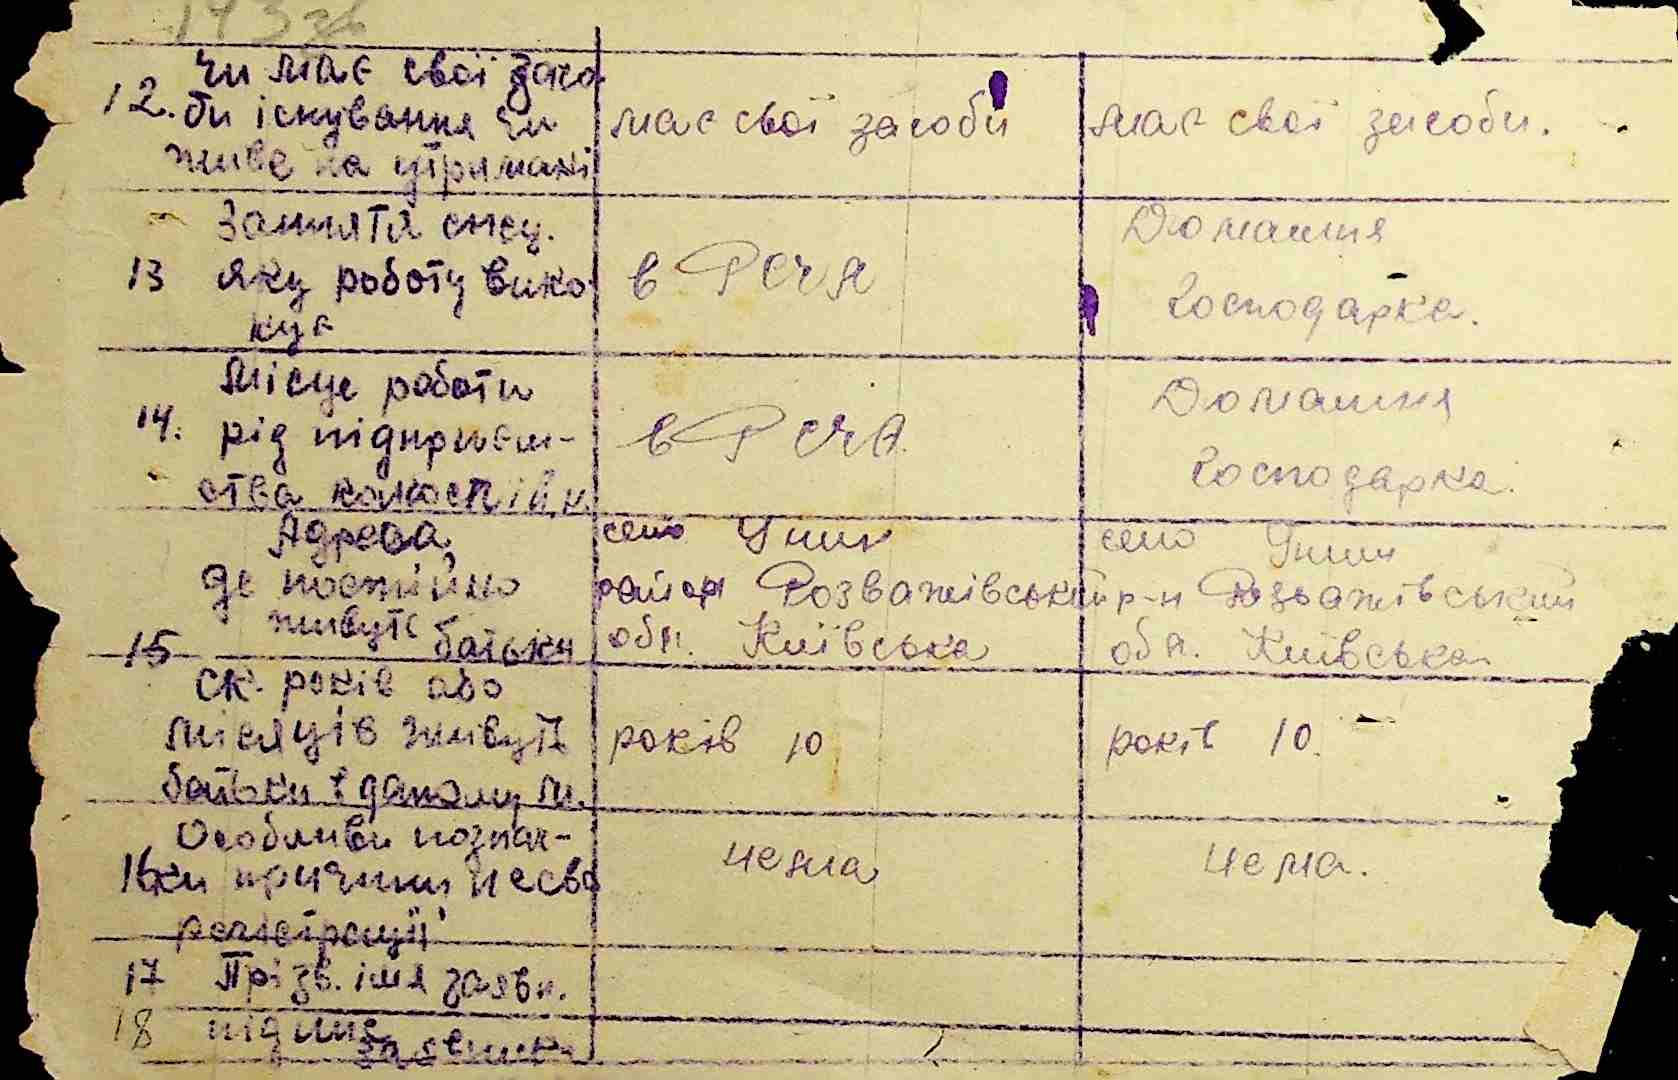 Чи має свої засо
12. би існування чи має свої засоби має свої засоби.
живе на утримані
Заняття Домашня
13 яку роботу вико в РСЧА Господарка.
нує
Місце роботи Домашня
14. рід підприєм- в РСЧА.
ства Господарка.
Адреса село Унин село Унин
де постійно район Розважівський р-н Розважівський
живуть
15 батьки обл. Київська обл. Київська
ск. років або
місяців живуть років 10 років 10.
батьки в даному м.
Особливи познач-
16 ки причини несво нема нема.
регістрації
17 Прізв. імя заявн.
18 підпис
заявника